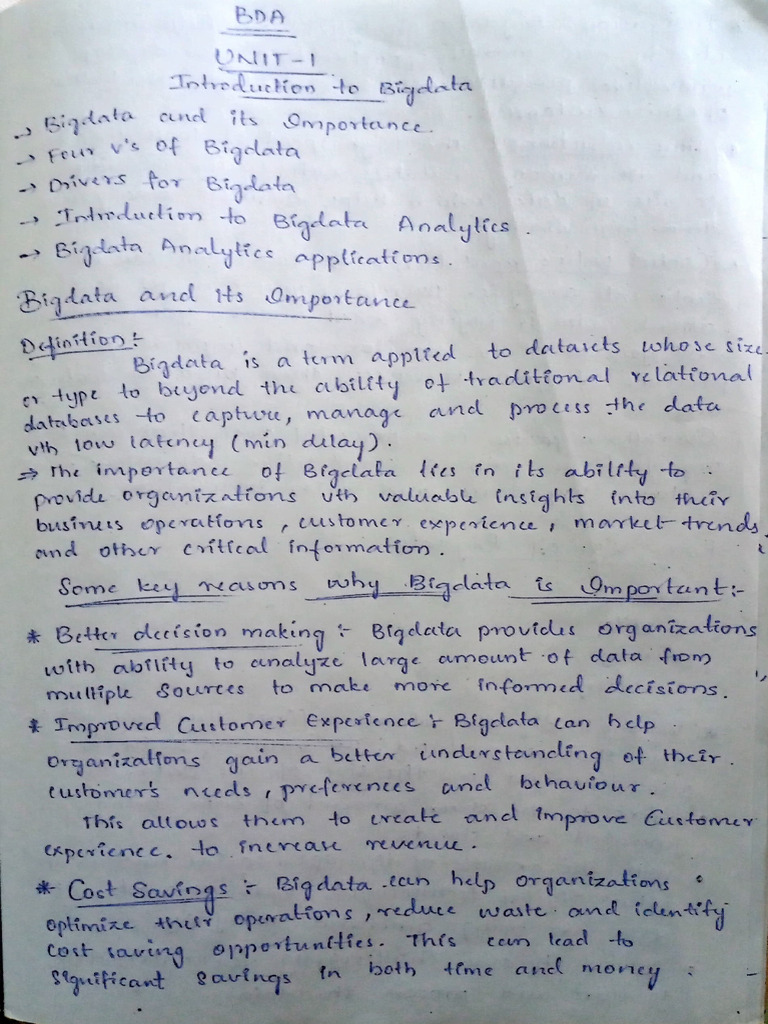 BDA
UNIT-1
Introduction to Bigdata
→ Bigdata and its Importance.
→ Four V's of Bigdata
→ Drivers for Bigdata
→ Introduction to Bigdata Analytics.
→ Bigdata Analytics applications.
Bigdata and its Importance
Definition:-
Bigdata is a term applied to datasets whose size
or type to beyond the ability of traditional relational
databases to capture, manage and process the data
wth low latency (min delay).
⇒ The importance of Bigdata lies in its ability to
provide organizations wth valuable insights into their
business operations, customer experience, market trends,
and other critical information.
Some key reasons why Bigdata is Important:-
* Better decision making :- Bigdata provides organizations
with ability to analyze large amount of data from
multiple sources to make more informed decisions.
* Improved Customer Experience :- Bigdata can help
organizations gain a better understanding of their
customer's needs, preferences and behaviour.
This allows them to create and improve Customer
experience. to increase revenue.
* Cost Savings :- Bigdata can help organizations
optimize their operations, reduce waste and identify
cost saving opportunities. This can lead to
significant savings in both time and money